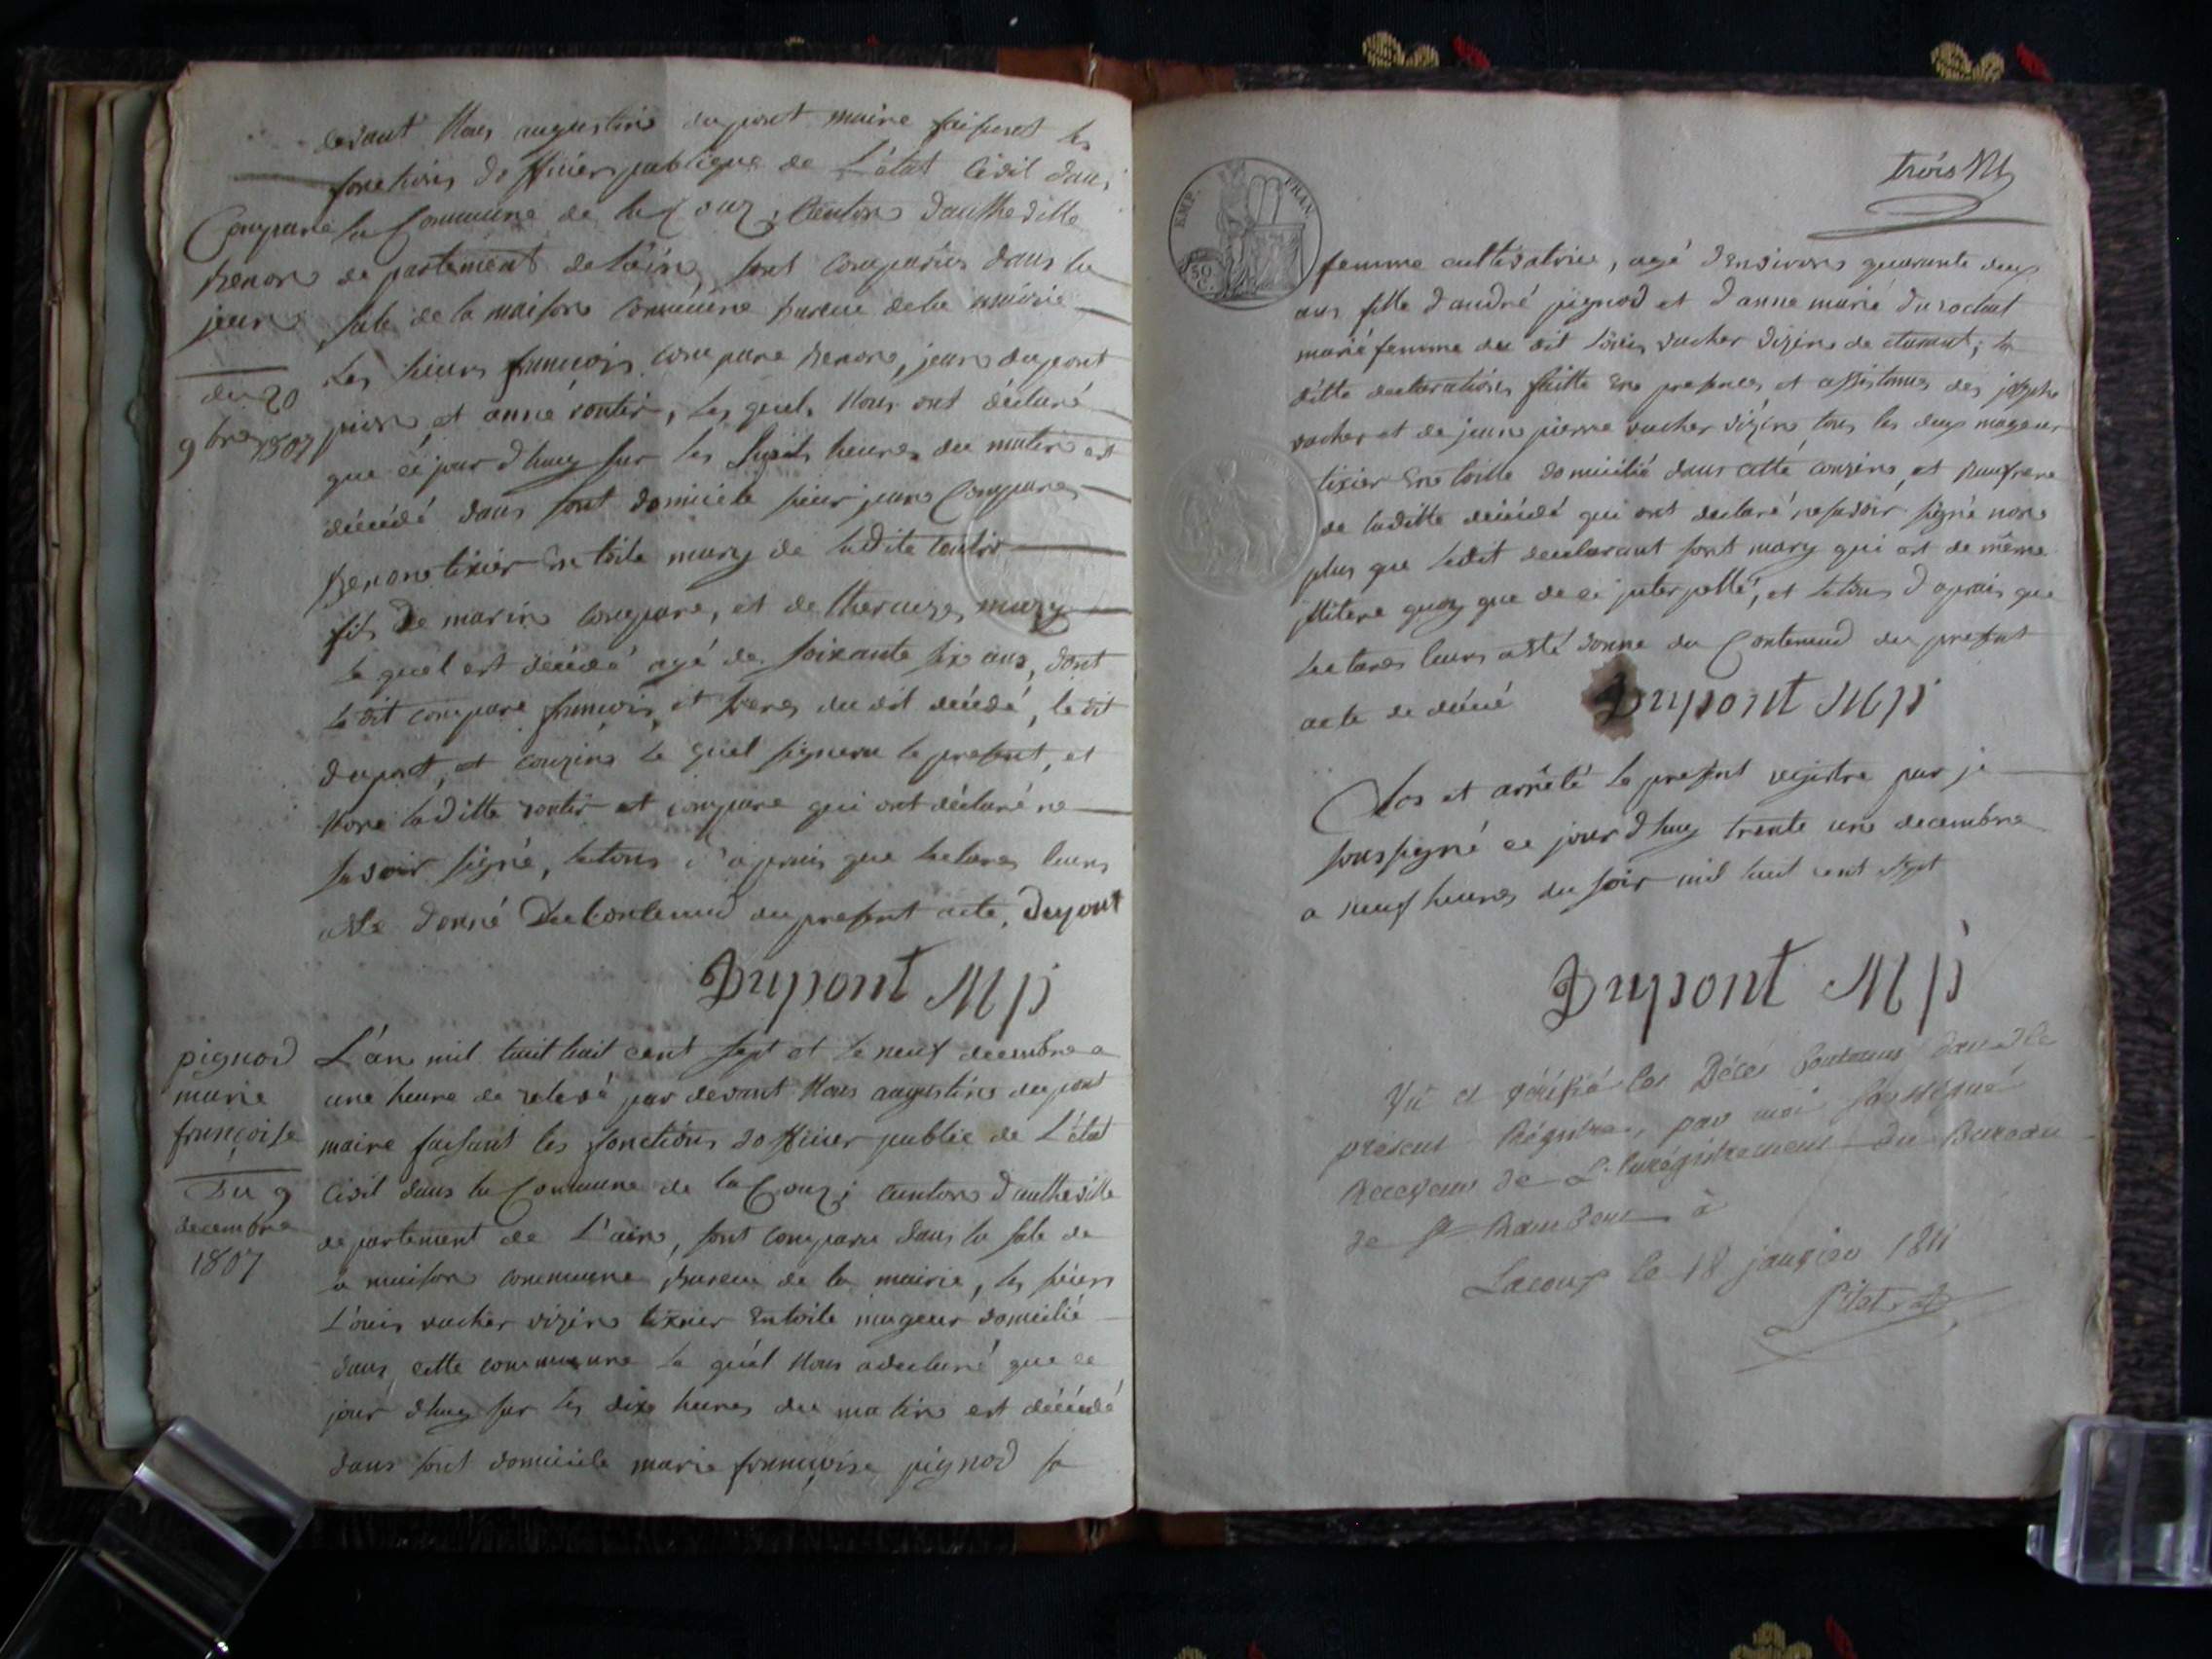 devant Nous augustin dupont maire faisant les
fonctions dofficier publique de L'état Civil dans
Compare la Commune de la Couz; Canton dautheville
Benone departement de lain, sont comparus dans la
jean sale de la maison commune bureau de la mairie
Les sieurs francois compare benone, jean dupont
du 20
9bre 1807
et anne routir, les quels Nous ont déclaré
que ce jour dhuy sur les huit heures du matin est
décédé dans sont domicile sieur jean Compare
Benone tixier En toile mary de ladite routir
fils de marin compare, et de theraize mury
le quel est décédé agé de soixante six ans, dont
ledit compare francois et frere du dit décédé, le dit
dupont, et couzin le quel signera le present, et
Non laditte routir et compare qui ont déclaré ne
savoir signé, letous d'aprais que lecture leurs
aste donné Du Contenud du present acte, Dupont
Dupont M
pignod
marie
françoise
Du 9
decembre
1807
L'an mil huit huit cent sept et le neuf decembre a
une heure de relevé par devant Nous augustin dupont
maire faisant les fonctions dofficier public de L'état
Civil dans la Commune de la Couz; canton dautheville
departement de L'ain, sont comparu dans la sale de
a maison commune bureau de la mairie, les sieurs
Louis vucher vizin tixier En toile mageur domicilié
dans cette commune le quel Nous adeclaré que ce
jour dhuy sur les dix heures du matin est décédé
dans sont domicile marie francoise pignod sa
trois
EMP. FRAN.
50 C.
femme cultivatrice, agé denviron quarante deux
ans fille dandré pignod et danne marie durochat
marié femme du dit Louis vucher vizin de
ditte declaration faitte En presences et assistances des joseph
vucher et de jean pierre vucher vizin tous les deux mageur
tixier En toille domicilié dans cette et
de laditte décédé qui ont déclaré ne savoir signé non
plus que ledit declarant sont mary qui est de même
illitere quoy que de ce interpellé, et letous d'aprais que
lectures leurs asté donne du Contenud du present
acte de décé Dupont M
Clos et arrêté le present rejistre par je
soussigné ce jour dhuy trente un decembre
a neuf heures du soir mil huit cent sept
Dupont M
Vu et vérifié les Décès Contenus dans le
présent Régistre, par moi soussigné
Receveur de L'Enrégistrement du Bureau
de St Rambert à
Lacoux le 18 janvier 1811